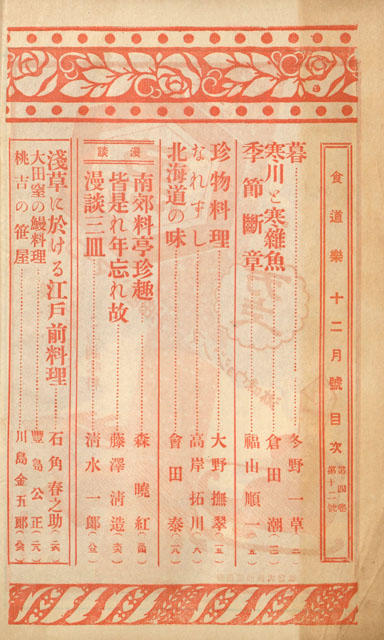 食道樂 十二月號 目次 第四卷 第十二號
暮……冬野一草
寒川と寒雜魚……倉田潮
季節斷章……福山順一
珍物料理……大野撫翠
なれずし……高岸拓川
北海道の味……會田泰
漫談
南郊料亭珍趣……森曉紅
皆是れ年忘れ故……藤澤淸造
漫談三皿……淸水一郎
淺草に於ける江戸前料理……石角春之助
大田窪の鰻料理……豐島公正
桃吉の笹屋……川島金五郎